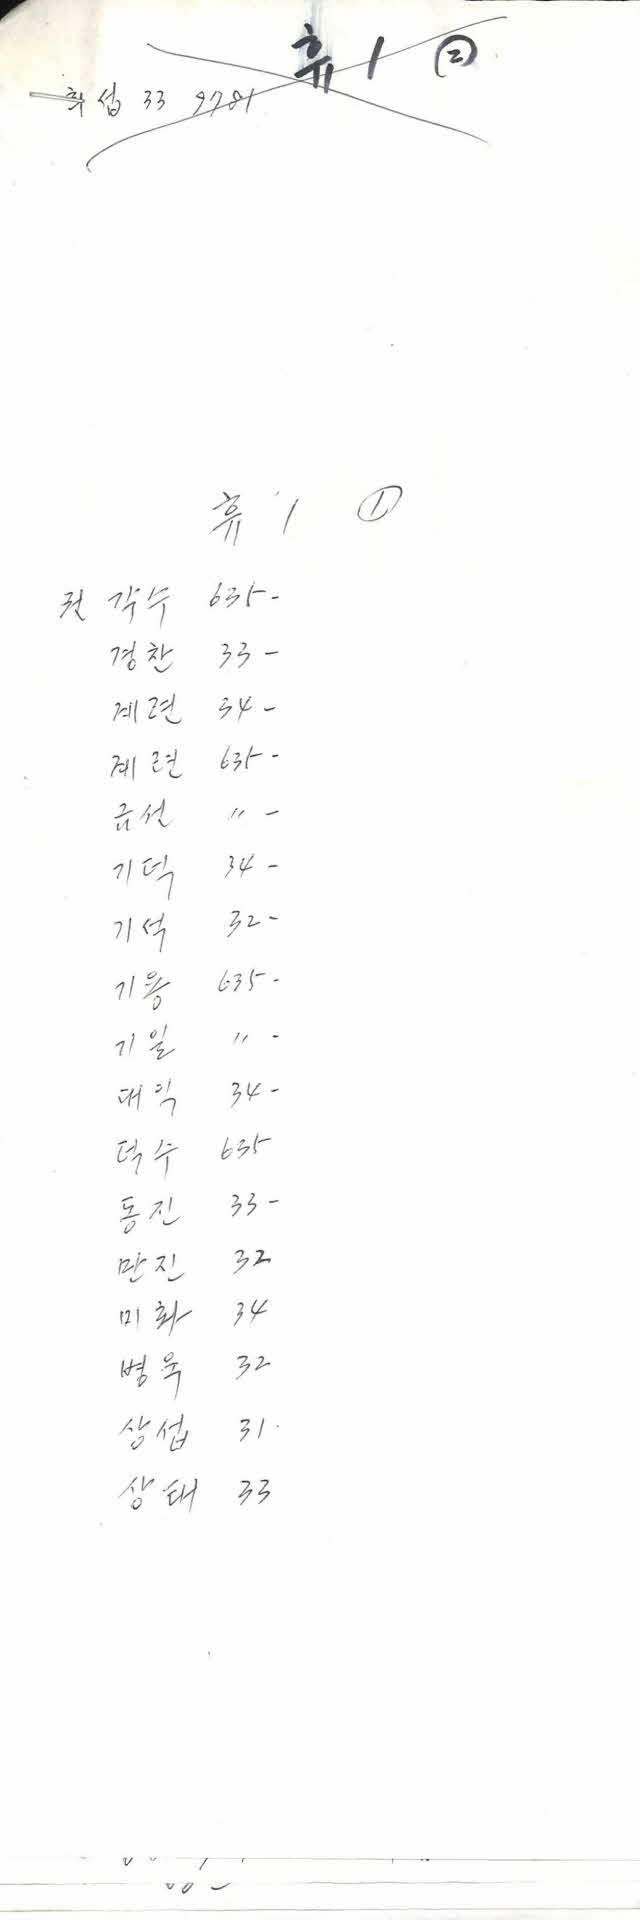 휴 1 ②
휘섭 33 9781
휴 1 ①
권 각수 635-
경찬 33-
계련 34-
계련 635-
금선 〃 -
기덕 34-
기석 32-
기용 635-
기일 〃 -
대익 34-
덕수 635
동진 33-
만진 32
미화 34
병욱 32
상섭 31
상태 33